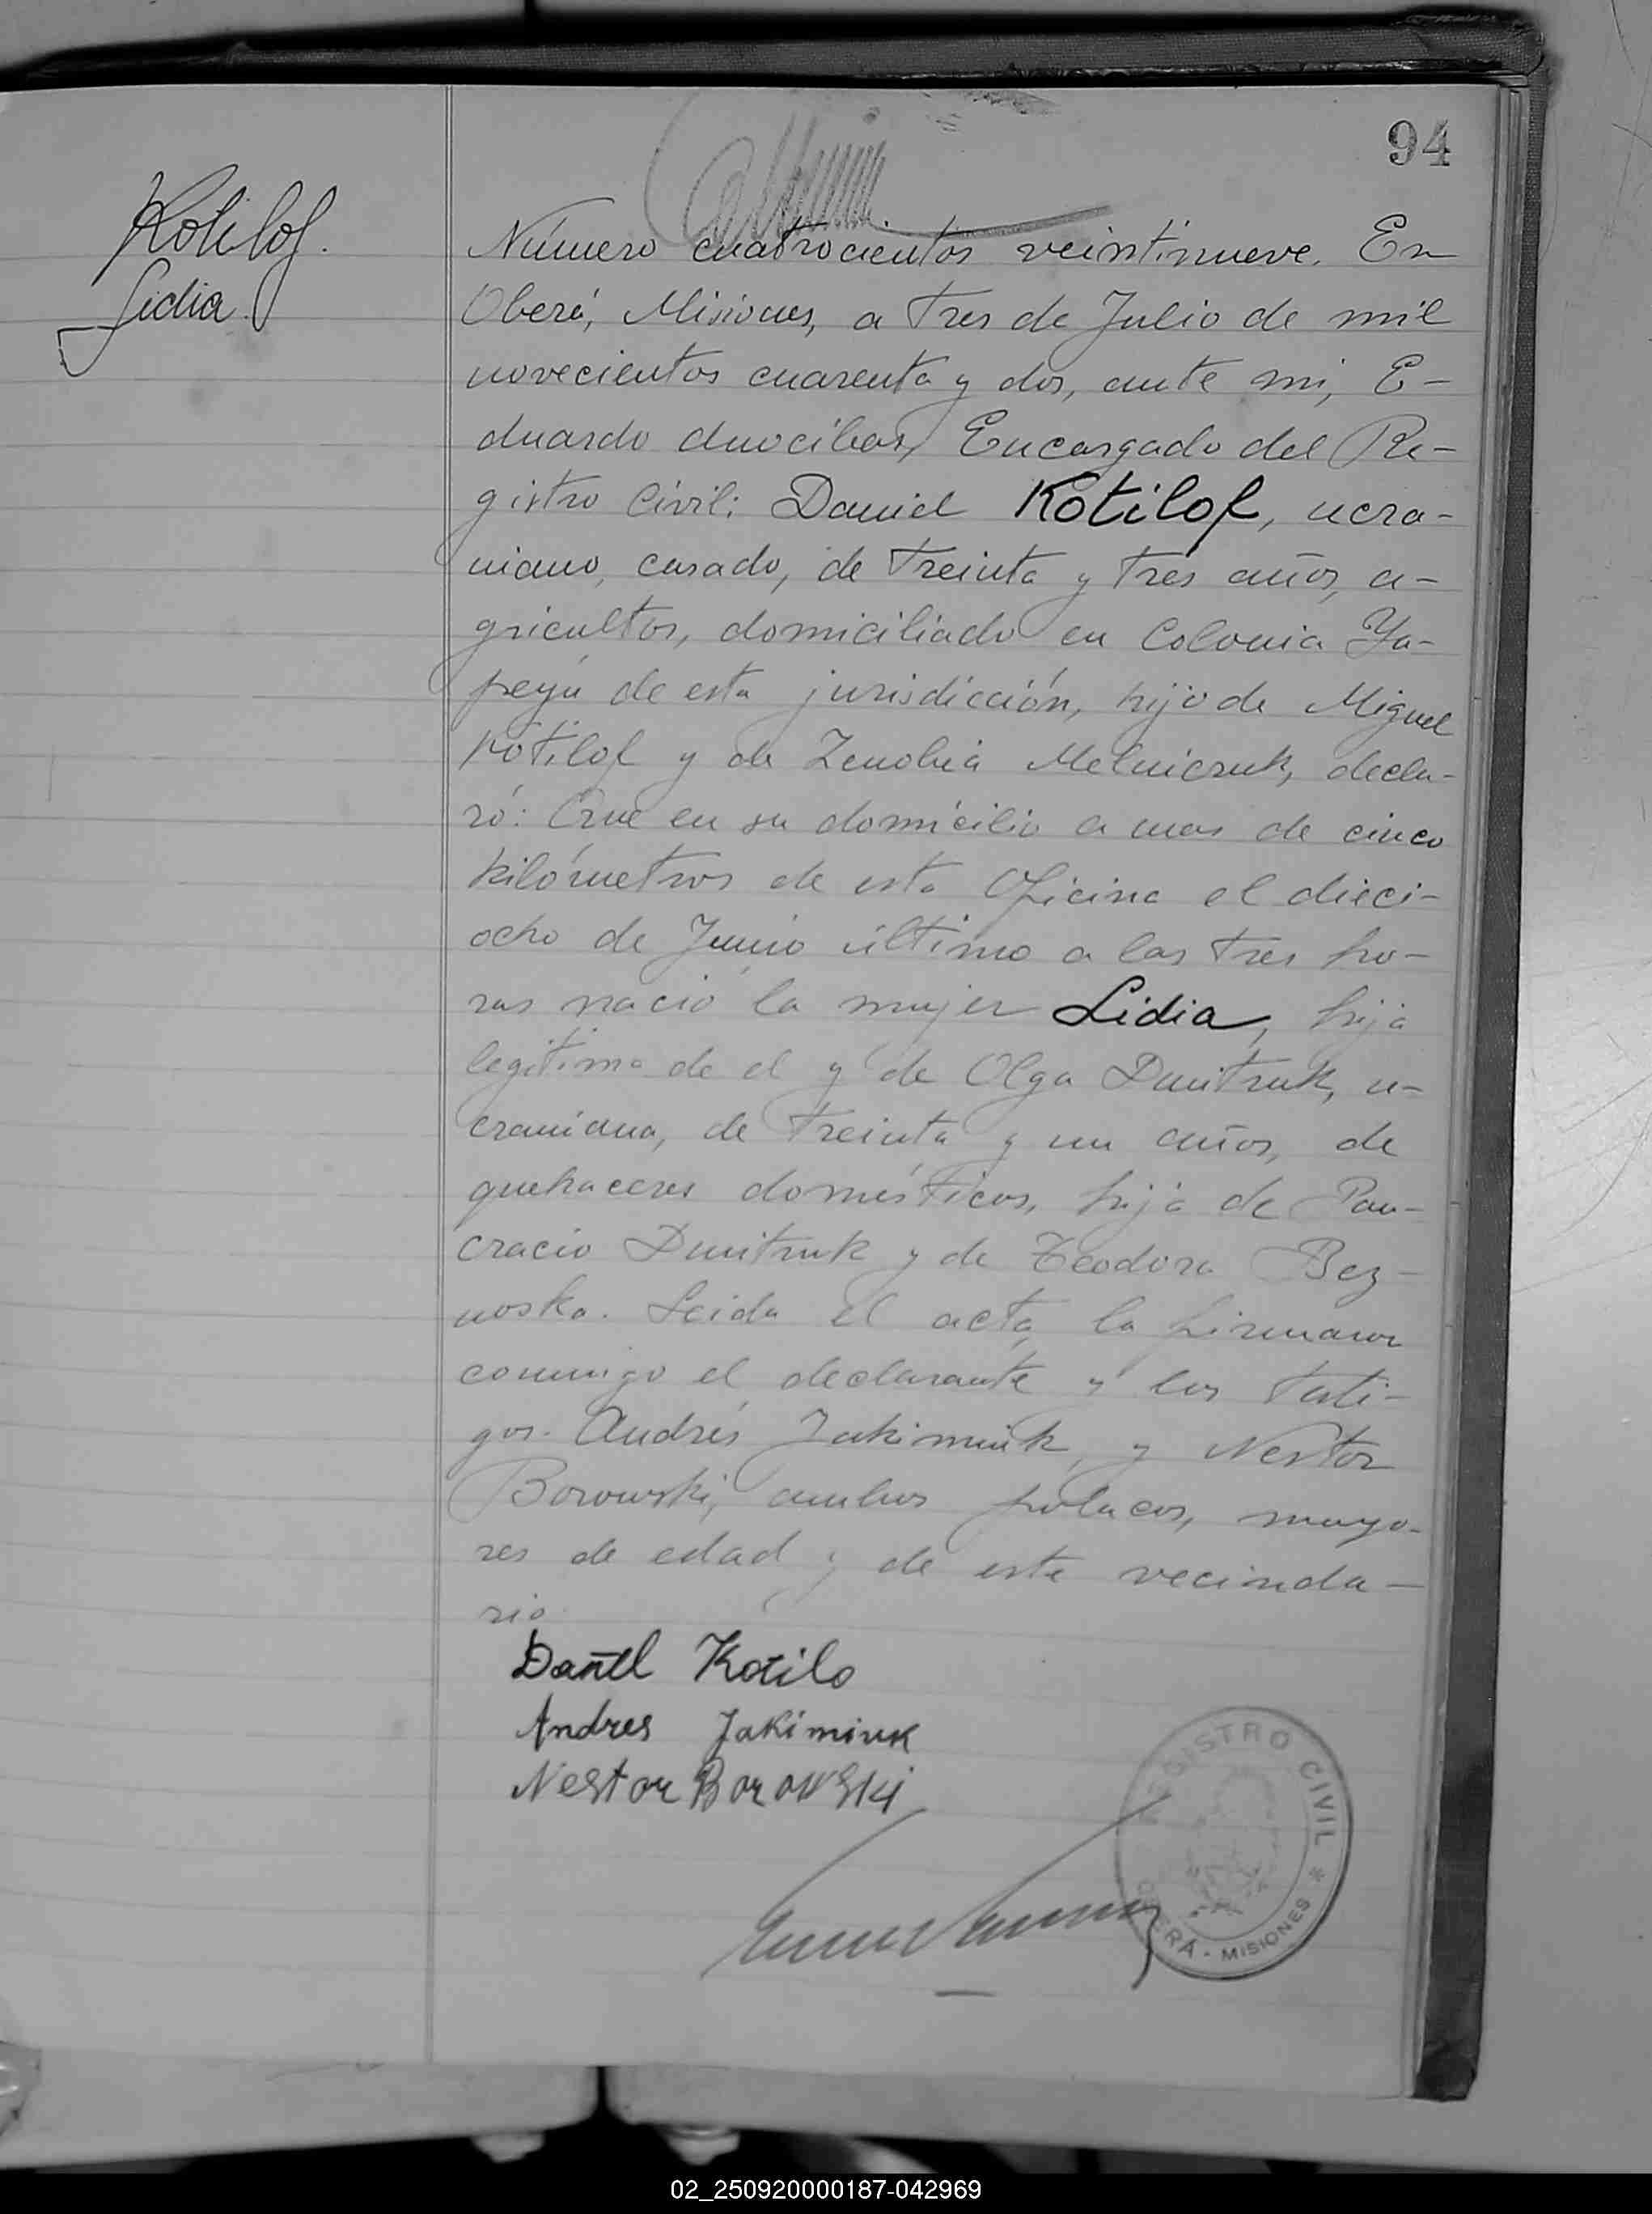 94
Kotilof.
Lidia.
Número cuatrocientos veintinueve. En
Oberá, Misiones, a tres de Julio de mil
novecientos cuarenta y dos, ante mi, E-
duardo Encargado del Re-
gistro Civil: Daniel Kotilof, ucra-
niano, casado, de treinta y tres años, a-
gricultor, domiciliado en Colonia Ya-
peyú de esta jurisdicción, hijo de Miguel
Kotilof y de Zenobia Melnicruk, decla-
ró: Que en su domicilio a mas de cinco
kilómetros de esta Oficina el dieci-
ocho de Junio último a las tres ho-
ras nació la mujer Lidia, hija
legitima de el y de Olga Dmitruk, u-
craniana, de treinta y un años, de
quehaceres domésticos, hija de Pan-
cracio Dmitruk y de Teodora Bez-
noska. Leida el acta, la firmaron
conmigo el declarante y los testi-
gos. Andrés Jakimiuk, y Nestor
Borowski, ambos polacos, mayo-
res de edad y de este vecinda-
rio.
Daniel Kotilo
Andres Jakimiuk
Nestor Borowski
REGISTRO CIVIL * OBERÁ - MISIONES
02_250920000187-042969